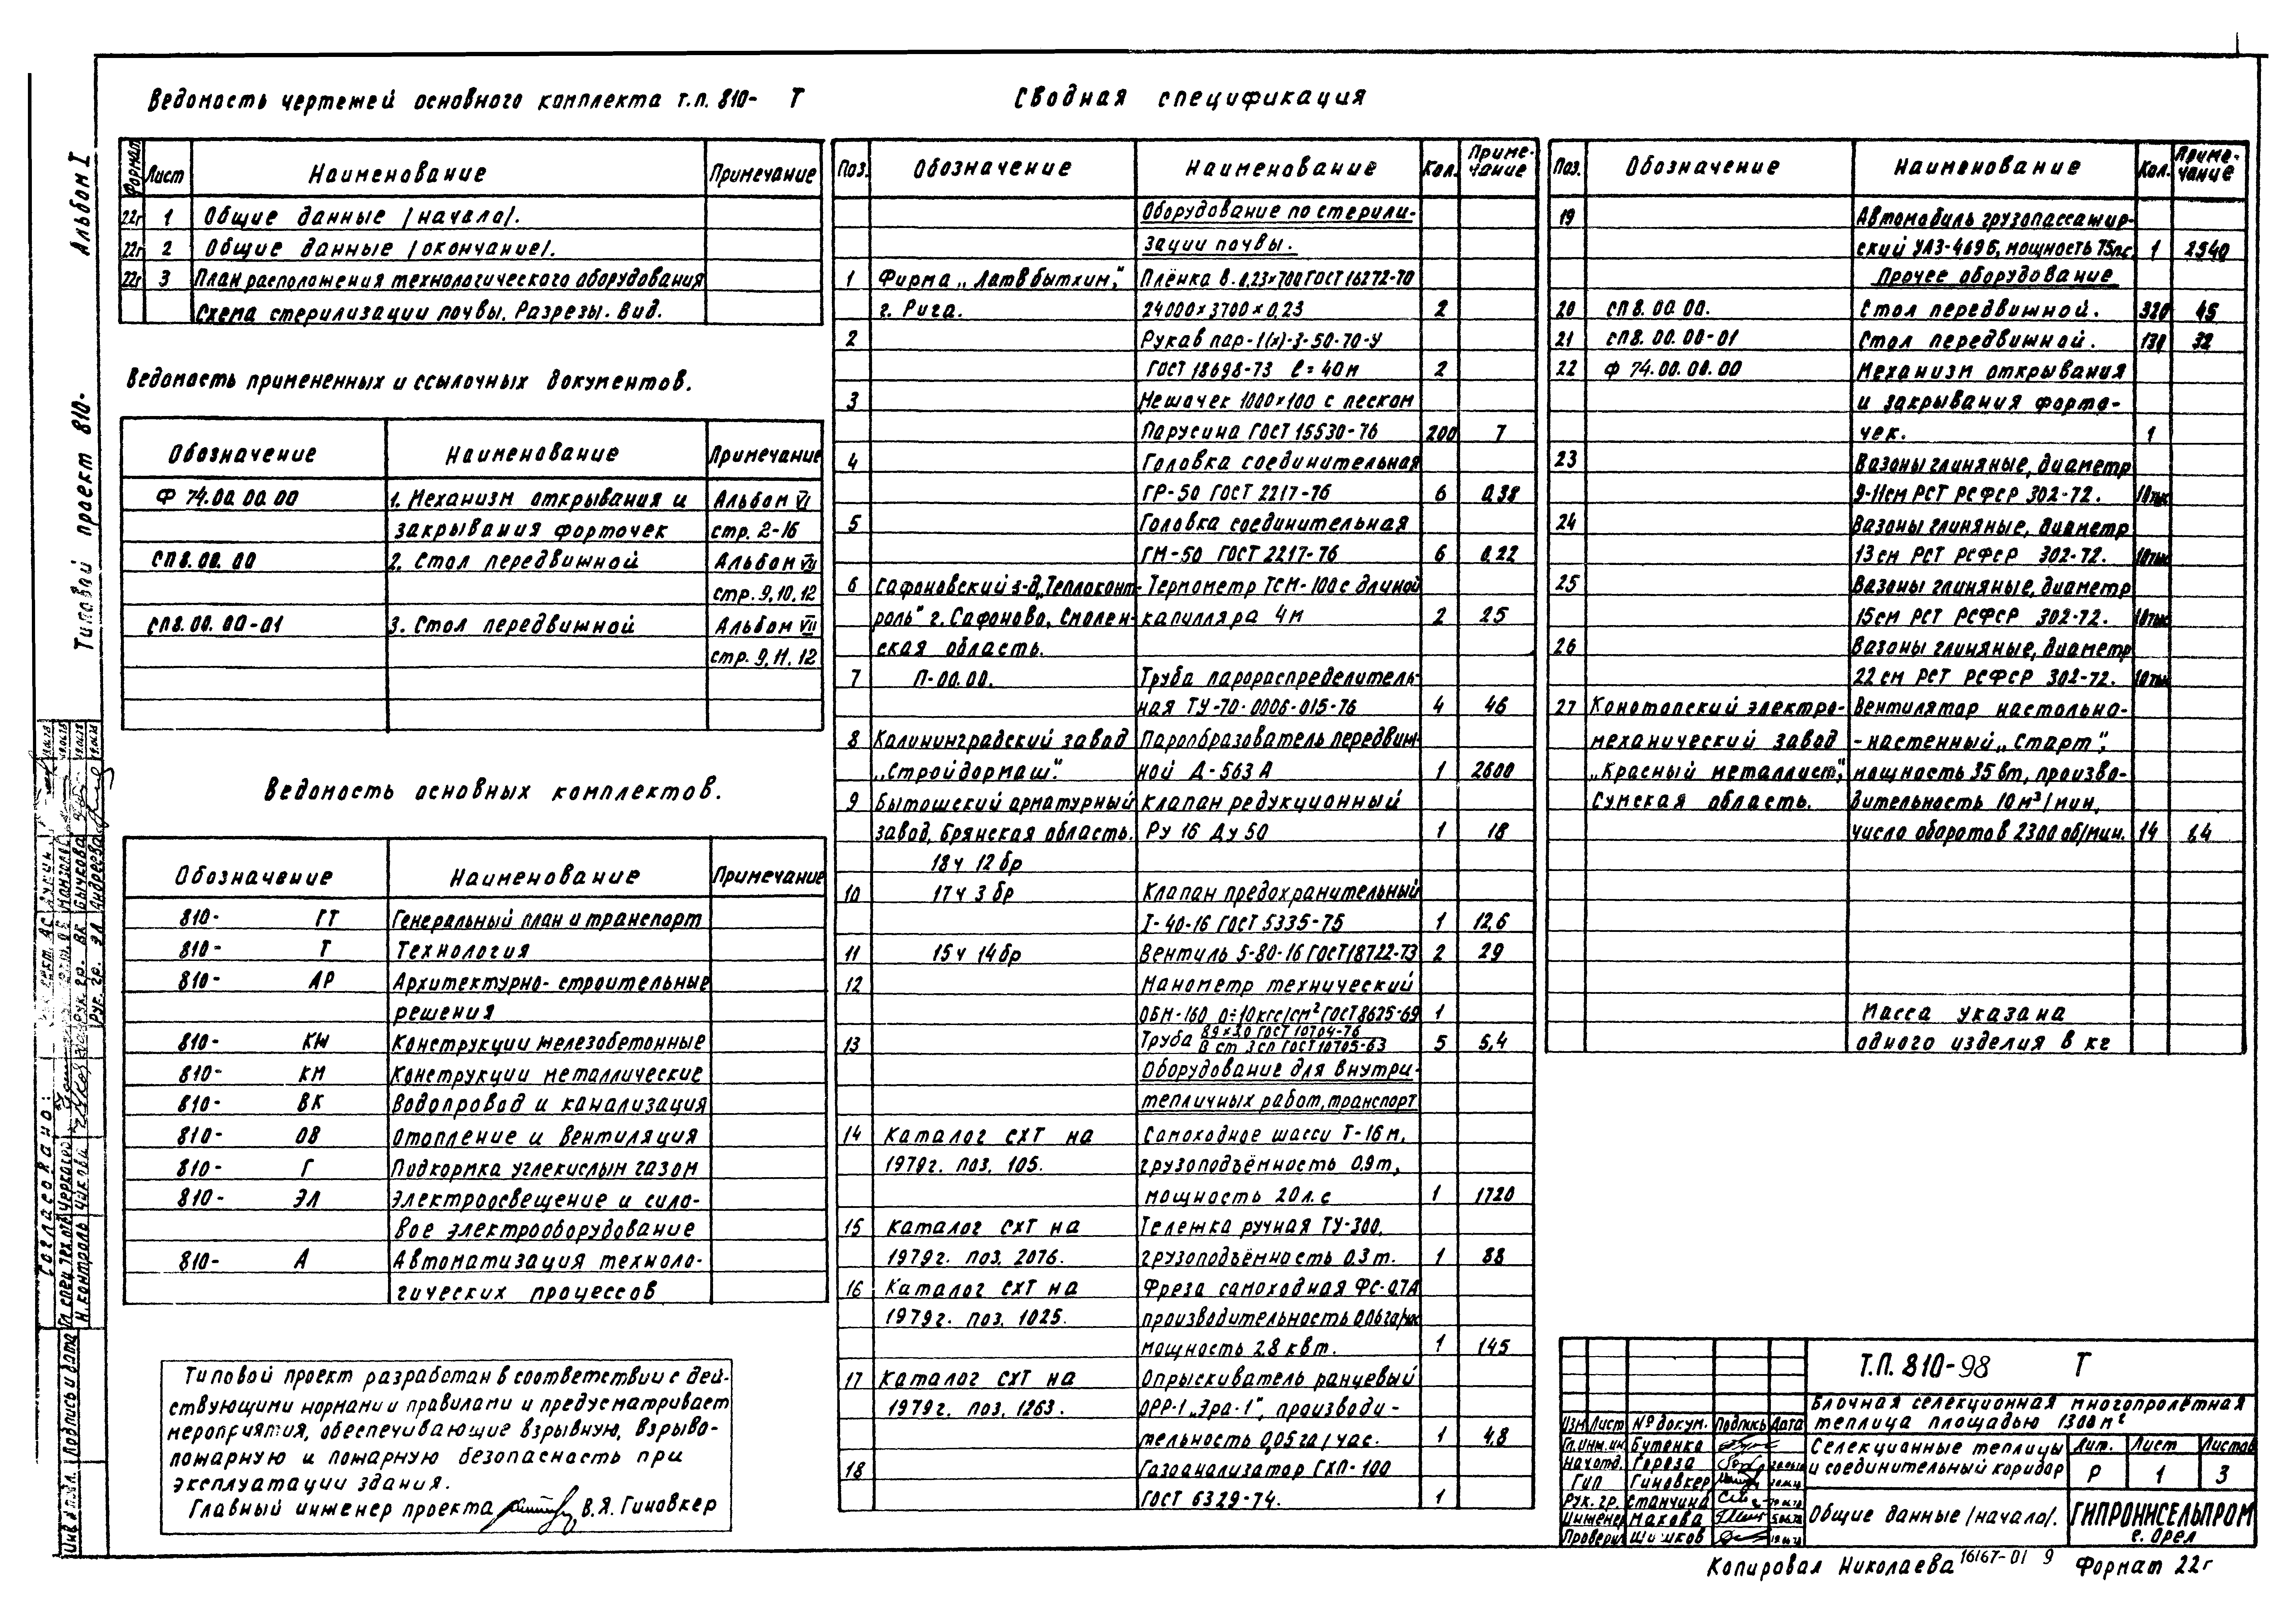 Альбом I
Типовой проект 810-
Ведомость чертежей основного комплекта т.п. 810- Т
Формат Лист Наименование Примечание
22г 1 Общие данные /начало/.
22г 2 Общие данные /окончание/.
22г 3 План расположения технологического оборудования
Схема стерилизации почвы. Разрезы. Вид.
Ведомость примененных и ссылочных документов.
Обозначение Наименование Примечание
Ф 74.00.00.00 1. Механизм открывания и Альбом VI
закрывания форточек стр. 2-16
СП8.00.00 2. Стол передвижной Альбом VII
стр. 9,10,12
СП8.00.00-01 3. Стол передвижной Альбом VII
стр. 9,11,12
Ведомость основных комплектов.
Обозначение Наименование Примечание
810- ГТ Генеральный план и транспорт
810- Т Технология
810- АР Архитектурно-строительные
решения
810- КЖ Конструкции железобетонные
810- КМ Конструкции металлические
810- ВК Водопровод и канализация
810- ОВ Отопление и вентиляция
810- Г Подкормка углекислым газом
810- ЭЛ Электроосвещение и сило-
вое электрооборудование
810- А Автоматизация техноло-
гических процессов
Типовой проект разработан в соответствии с дей-
ствующими нормами и правилами и предусматривает
мероприятия, обеспечивающие взрывную, взрыво-
пожарную и пожарную безопасность при
эксплуатации здания.
Главный инженер проекта В.Я. Гиновкер
Сводная спецификация
Поз. Обозначение Наименование Кол. Приме-
чание
Оборудование по стерили-
зации почвы.
1 Фирма „Латвбытхим", Плёнка В. 0,23×700 ГОСТ 16272-70
г. Рига. 24000×3700×0,23 2
2 Рукав пар-1(х)-3-50-70-У
ГОСТ 18698-73 ℓ=40м 2
3 Мешочек 1000×100 с песком
Парусина ГОСТ 15530-76 200 7
4 Головка соединительная
ГР-50 ГОСТ 2217-76 6 0,38
5 Головка соединительная
ГМ-50 ГОСТ 2217-76 6 0,22
6 Сафоновский з-д „Теплоконт- Термометр ТСМ-100 с длиной
роль" г. Сафоново, Смолен- капилляра 4м 2 25
ская область.
7 П-00.00. Труба парораспределитель-
ная ТУ-70-0006-015-76 4 46
8 Калининградский завод Парообразователь передвиж-
„Стройдормаш". ной Д-563А 1 2600
9 Бытошский арматурный Клапан редукционный
завод, Брянская область. Ру 16 Ду 50 1 18
18ч 12бр
10 17ч 3бр Клапан предохранительный
I-40-16 ГОСТ 5335-75 1 12,6
11 15ч 14бр Вентиль 5-80-16 ГОСТ18722-73 2 29
12 Манометр технический
ОБМ-160 0÷10кгс/см² ГОСТ8625-69 1
13 Труба 89×3.0 ГОСТ 10704-76 5 5,4
В ст 3сп ГОСТ10705-63
Оборудование для внутри-
тепличных работ, транспорт
14 Каталог СХТ на Самоходное шасси Т-16м,
1979г. поз. 105. грузоподъёмность 0.9т,
мощность 20л.с 1 1720
15 Каталог СХТ на Тележка ручная ТУ-300,
1979г. поз. 2076. грузоподъёмность 0.3т. 1 88
16 Каталог СХТ на Фреза самоходная ФС-0.7А
1979г. поз. 1025. производительность 0.06га/час
мощность 2.8 квт. 1 145
17 Каталог СХТ на Опрыскиватель ранцевый
1979г. поз. 1263. ОРР-1 „Эра-1", производи-
тельность 0,05га/час. 1 4,8
18 Газоанализатор ГХП-100
ГОСТ 6329-74. 1
Поз. Обозначение Наименование Кол. Приме-
чание
19 Автомобиль грузопассажир-
ский УАЗ-469Б, мощность 75лс. 1 2540
Прочее оборудование
20 СП8.00.00. Стол передвижной. 320 45
21 СП8.00.00-01 Стол передвижной. 130 32
22 Ф 74.00.00.00 Механизм открывания
и закрывания форто-
чек. 1
23 Вазоны глиняные, диаметр
9-11см РСТ РСФСР 302-72. 10тыс
24 Вазоны глиняные, диаметр
13см РСТ РСФСР 302-72. 10тыс
25 Вазоны глиняные, диаметр
15см РСТ РСФСР 302-72. 10тыс
26 Вазоны глиняные, диаметр
22см РСТ РСФСР 302-72. 10тыс
27 Конотопский электро- Вентилятор настольно-
механический завод -настенный „Старт",
„Красный металлист", мощность 35вт, произво-
Сумская область. дительность 10м³/мин,
число оборотов 2300об/мин. 14 1.4
Масса указана
одного изделия в кг
Т.П. 810-98 Т
Блочная селекционная многопролётная
теплица площадью 1300м²
Изм Лист № докум. Подпись Дата
Гл.инж.ин. Бутенко
Нач.отд. Гореза
ГИП Гиновкер
Рук. гр. Станчина
Инженер Махова
Проверил Шишков
Селекционные теплицы
и соединительный коридор
Лит. Лист Листов
Р 1 3
Общие данные /начало/.
ГИПРОНИСЕЛЬПРОМ
г. Орел
Копировал Николаева 16167-01 9 Формат 22г
Согласовано:
Н.контроль
Рук. гр. ВК Бычкова
Рук. гр. ЭЛ Андреева
Подпись и дата
Инв.№ подл.